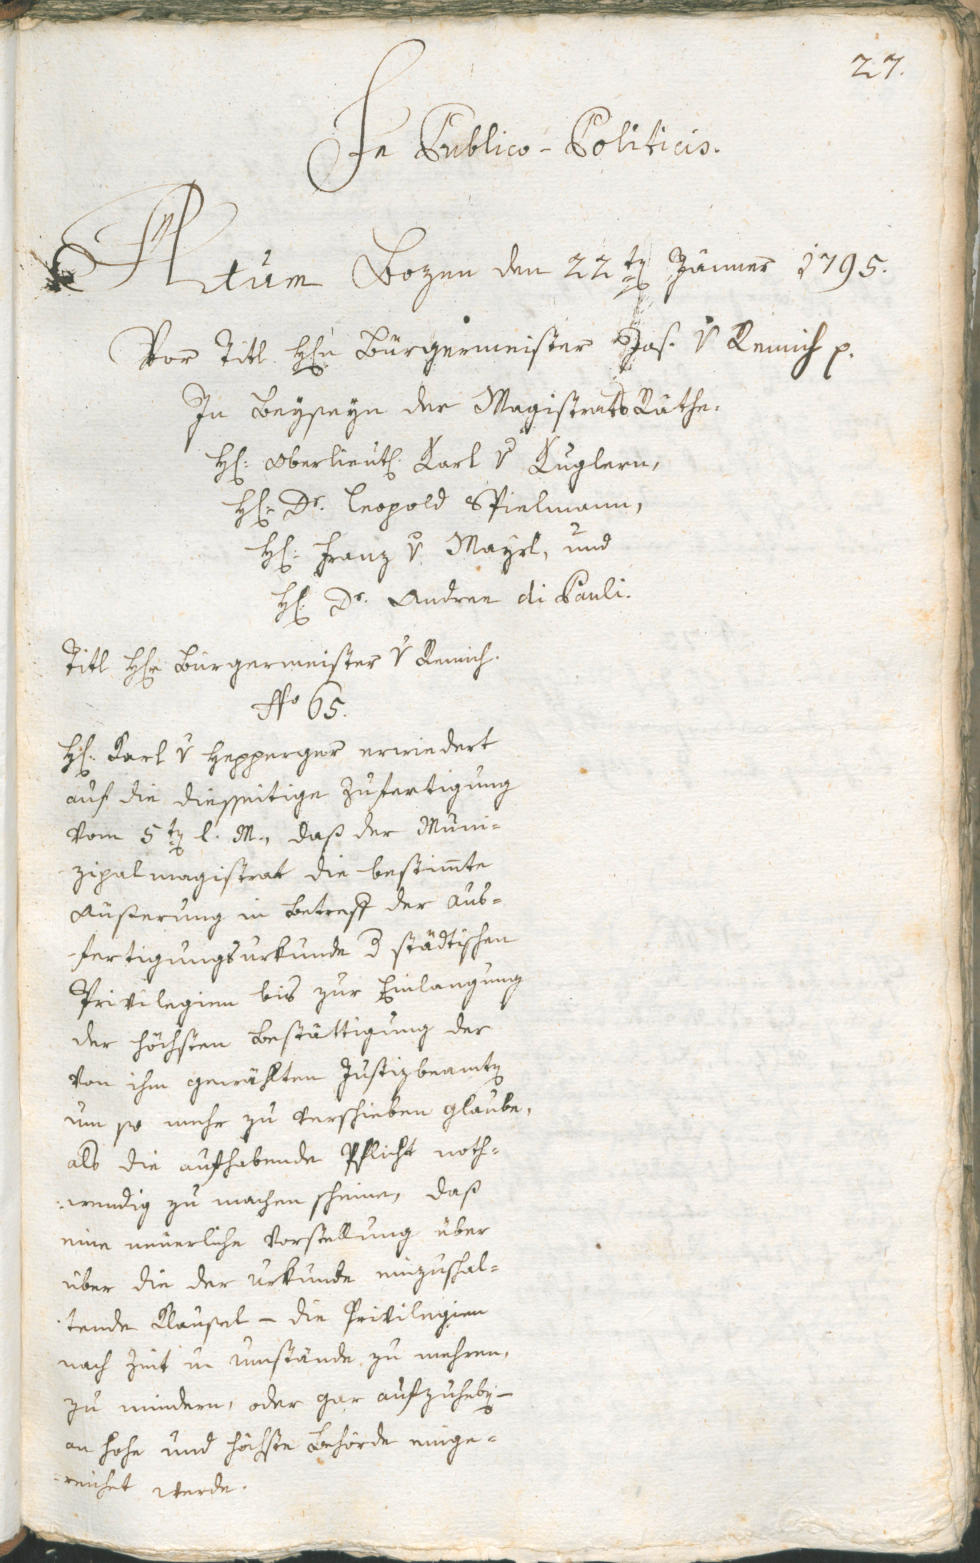 27.
In Publico-Politicis.
Actum Bozen den 22ten Jänner 1795.
Vor Titl. Hn Bürgermeister Jos. v Remich p.
In Beyseyn der Magistrats Räthe.
H: Oberlieut: Karl v Kuglern,
H: Dr. Leopold Spielmann,
H: Franz v. Mayrl, und
H: Dr. Andree di Pauli.
Titl Hr Bürgermeister v Remich.
No 65.
H: Karl v Hepperger erwiedert
auf die diesseitige Zufertigung
vom 5ten l. M., daß der Muni-
zipalmagistrat die bestimte
Äußerung in Betreff der Aus-
fertigungsurkunde d städtischen
Privilegien bis zur Einlangung
der höchsten Bestättigung der
von ihm gewählten Justizbeamten
um so mehr zu verschieben glaube,
als die aufhabende Pflicht noth-
wendig zu machen scheine, daß
eine neuerliche Vorstellung über
über die der Urkunde einzuschal-
tende Klausel - die Privilegien
nach Zeit u Umstände zu mehren,
zu mindern, oder gar aufzuheben -
an hohe und höchste Behörde einge-
reichet werde.